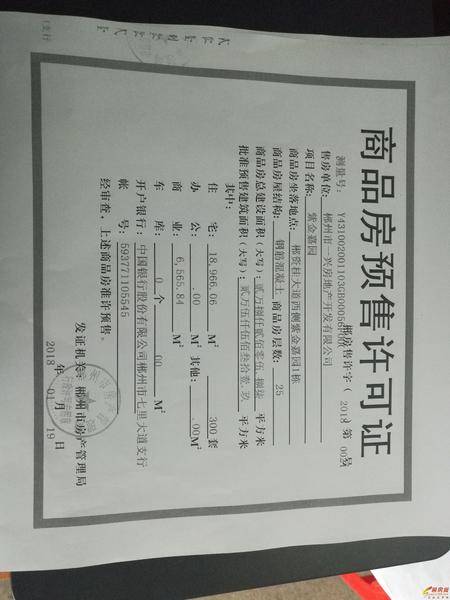 商品房预售许可证
郴房售许字( 2018 第 00 号
测量号: Y431002001103GB00056
售房单位: 郴州市一兴房地产开发有限公司
项目名称: 紫金嘉园
商品房坐落地点: 郴资桂大道西侧紫金嘉园1栋
商品房屋结构: 钢筋混凝土 商品房层数: 25
商品房总建设面积(大写): 贰万捌仟贰佰零伍.捌柒 平方米
批准预售建筑面积(大写): 贰万伍仟伍佰叁拾壹.玖 平方米
其中:
住 宅: 18,966.06 M² 300 套
办 公: .00 M² 其他: .00 M²
商 业: 6,565.84 M²
车 库: 0 个 00 M²
开户银行: 中国银行股份有限公司郴州市七里大道支行
帐 号: 593771105545
经审查,上述商品房准许预售。
发证机关: 郴州市房产管理局
2018 年 01 月 19 日